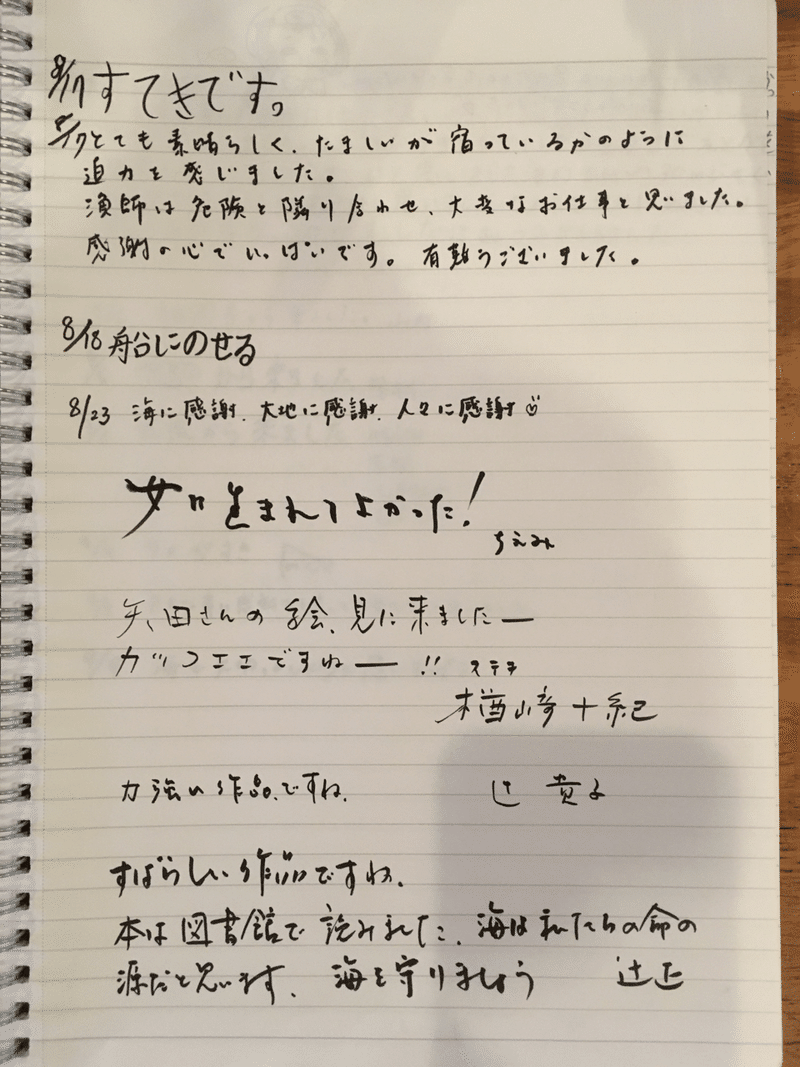 8/17すてきです。
8/17とても素晴らしく、たましいが宿っているかのように
迫力を感じました。
漁師は危険と隣り合わせ、大変なお仕事と思いました。
感謝の心でいっぱいです。有難うございました。
8/18 船にのせる
8/23 海に感謝、大地に感謝、人々に感謝
生まれてよかった!
ちえみ
矢田さんの絵、見に来ましたー
カッコエエですねー!! ステキ
楢崎十紀
力強い作品ですね。 辻 貴子
すばらしい作品ですね。
本は図書館で読みました、海は私たちの命の
源だと思います、海を守りましょう 辻正